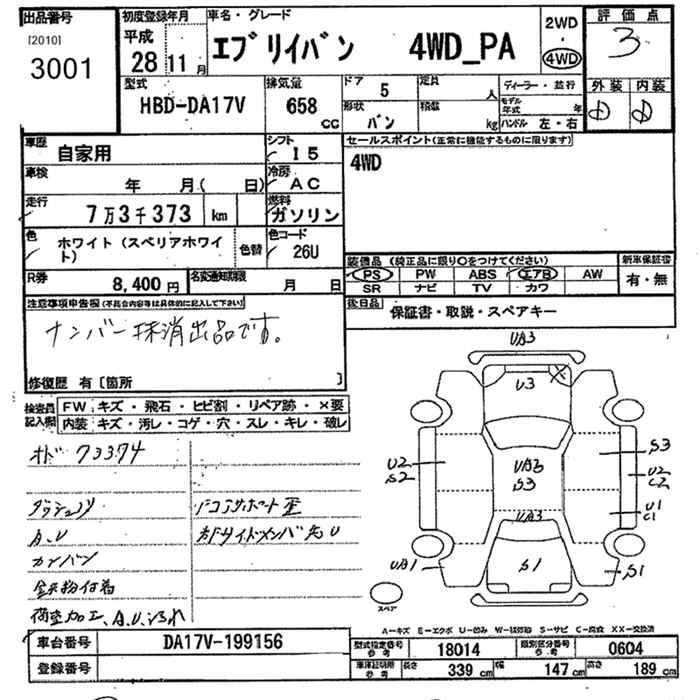 出品番号
[2010]
3001
初度登録年月
平成
28 11 月
車名・グレード
エブリイバン 4WD_PA
2WD
・
4WD
評価点
3
外装 内装
D D
型式
HBD-DA17V
排気量
658 cc
ドア
5
形状
バン
定員
人
積載
kg
ディーラー・並行
モデル年式 年
ハンドル 左・右
車歴
自家用
シフト
I5
車検
年 月( 日)
冷房
AC
走行
7万3千373 km
燃料
ガソリン
色
ホワイト (スペリアホワイト)
色替
色コード
26U
R券
8,400 円
名変通知期限
月 日
セールスポイント(正常に機能するものに限ります)
4WD
装備品 (純正品に限り〇をつけてください)
PS PW ABS エアB AW
SR ナビ TV カワ
新車保証書
有・無
後日品
保証書・取説・スペアキー
注意事項申告欄(不具合内容等は具体的に記入して下さい)
ナンバー抹消出品です。
修復歴 有 [箇所 ]
検査員記入欄
FW キズ・飛石・ヒビ割・リペア跡・×要
内装 キズ・汚レ・コゲ・穴・スレ・キレ・破レ
オド 73374
A.U
カンバン
鉄粉付着
荷室加工、A.U.
コアサポート歪
右サイドメンバ先U
UA3
U3
UA3
S3
UA3
S1
U2
S2
UA1
S3
U2
C2
U1
C1
S1
スペア
A-キズ E-エクボ U-凹み W-補修跡 S-サビ C-腐食 XX-交換済
車台番号
DA17V-199156
登録番号
型式指定番号
参考
18014
類別区分番号
参考
0604
車庫証明用
参考
長さ 339 cm 幅 147 cm 高さ 189 cm